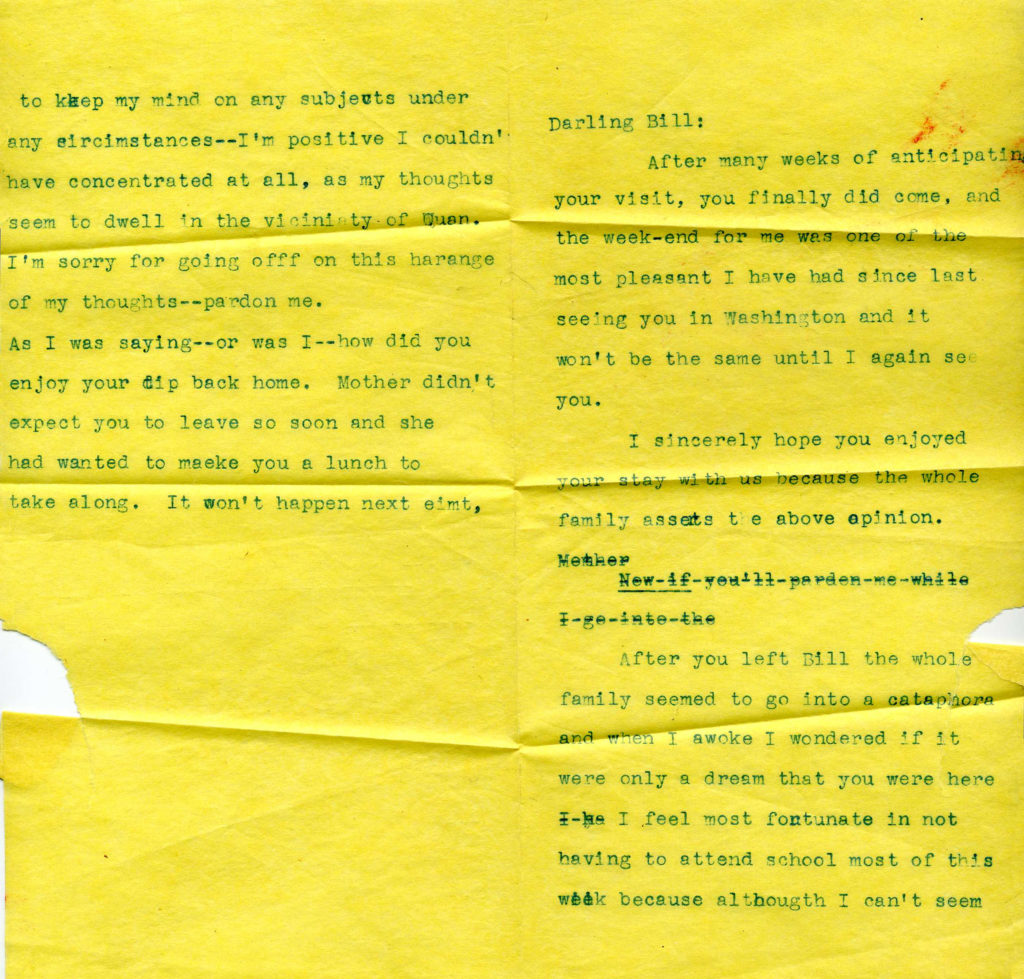 Darling Bill:
After many weeks of anticipatin
your visit, you finally did come, and
the week-end for me was one of the
most pleasant I have had since last
seeing you in Washington and it
won't be the same until I again see
you.
I sincerely hope you enjoyed
your stay with us because the whole
family assets t e above opinion.
Mother
Now-if-you'll-pardon-me-while
I-go-into-the
After you left Bill the whole
family seemed to go into a cataphora
and when I awoke I wondered if it
were only a dream that you were here
I-ha I feel most fortunate in not
having to attend school most of this
week because althougth I can't seem
to keep my mind on any subjects under
any circimstances--I'm positive I couldn'
have concentrated at all, as my thoughts
seem to dwell in the viciniaty of Quan.
I'm sorry for going offf on this harange
of my thoughts--pardon me.
As I was saying--or was I--how did you
enjoy your dip back home. Mother didn't
expect you to leave so soon and she
had wanted to maeke you a lunch to
take along. It won't happen next eimt,